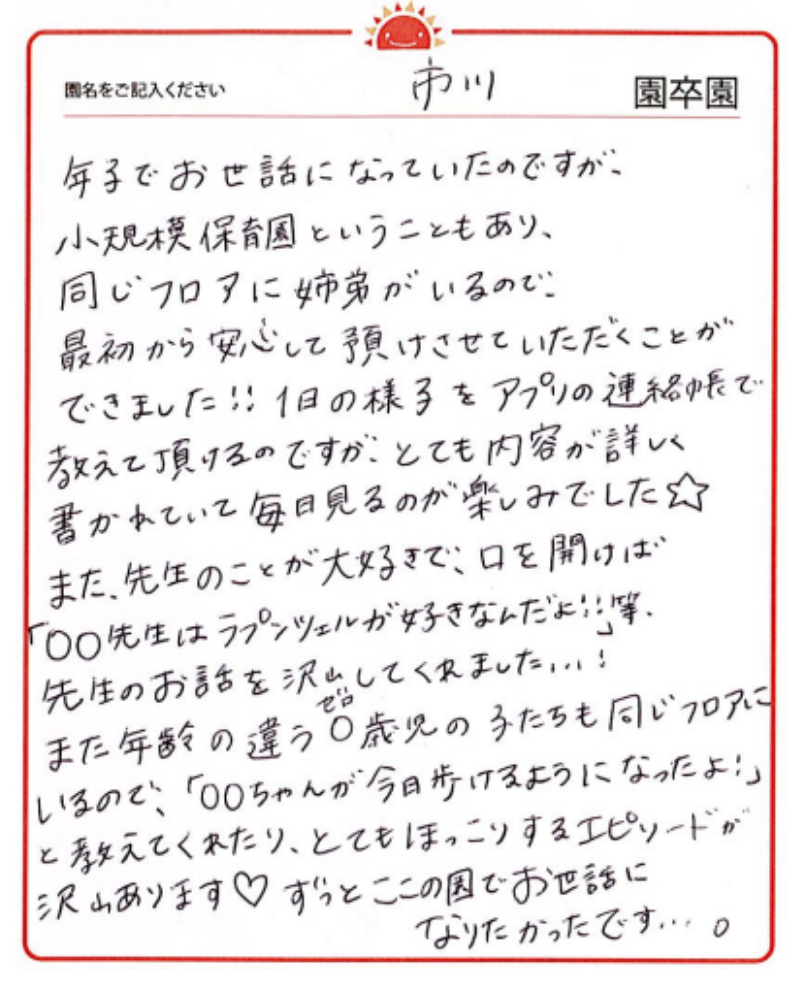 園名をご記入ください 市川 園卒園
年子でお世話になっていたのですが、
小規模保育園ということもあり、
同じフロアに姉弟がいるので、
最初から安心して預けさせていただくことが
できました!! 1日の様子をアプリの連絡帳で
教えて頂けるのですが、とても内容が詳しく
書かれていて毎日見るのが楽しみでした☆
また、先生のことが大好きで、口を開けば
「〇〇先生はラプンツェルが好きなんだよ!!」等、
先生のお話を沢山してくれました...!
また年齢の違う0歳児の子たちも同じフロアに
ゼロ
いるので、「〇〇ちゃんが今日歩けるようになったよ!」
と教えてくれたり、とてもほっこりするエピソードが
沢山あります♡ ずっとここの園でお世話に
なりたかったです...。